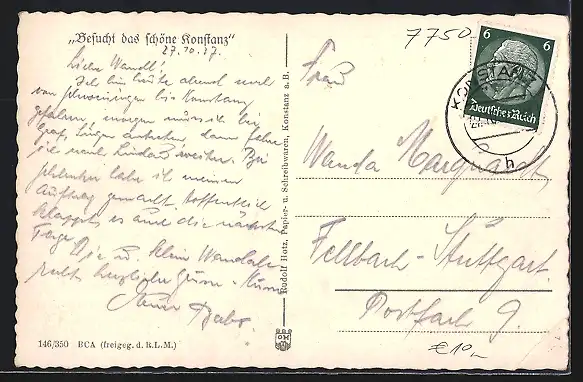 „Besucht das schöne Konstanz"
27.10.37.
Liebe Wandl!
Ich bin heute abend noch
von bis Konstanz
gefahren, morgen muss ich bei
dann fahre
ich nach Lindau weiter. Bei
habe ich meinen
Auftrag gemacht, hoffentlich
klappt es auch die nächsten
Tage.
Dir u. klein
recht herzliche Grüße
7750
6 6
Deutsches Reich
KONSTANZ
h
Frau
Wanda Marquardt,
Fellbach-Stuttgart
Postfach 9.
€10,-
Rudolf Hotz, Papier- u. Schreibwaren, Konstanz a. B.
146/350 BCA (freigeg. d. R.L.M.)